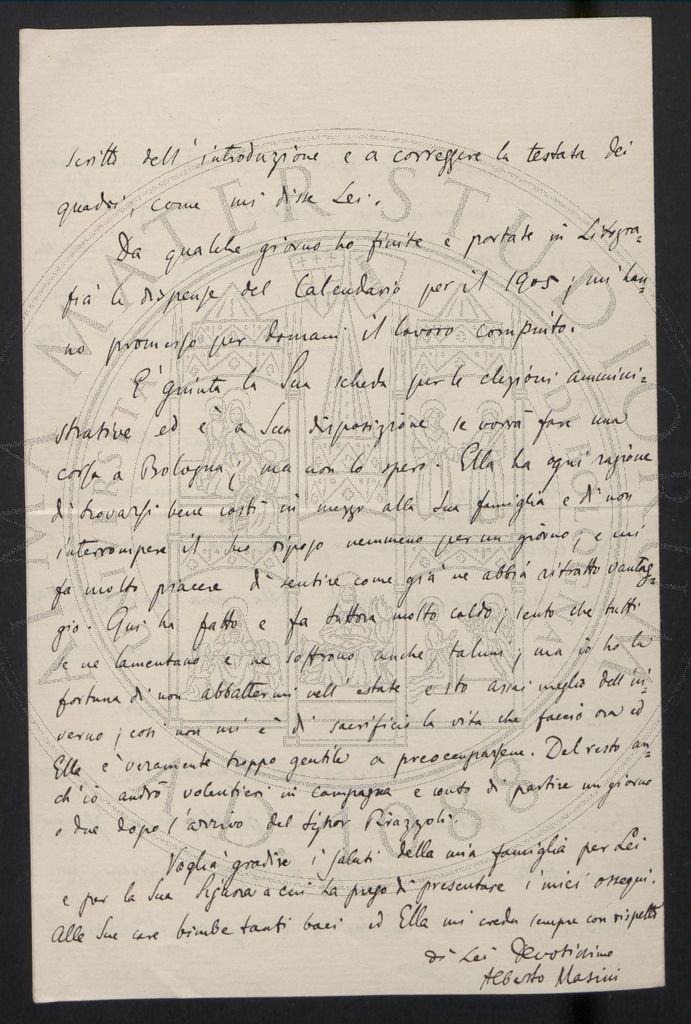 scritto dell'introduzione e a correggere la testata dei
quadri, come mi disse Lei.
Da qualche giorno ho finite e portate in Litogra-
fia le dispense del Calendario per il 1905; mi han-
no promesso per domani il lavoro compiuto.
E' giunta la Sua scheda per le elezioni ammini-
strative ed è a Sua disposizione se vorrà fare una
corsa a Bologna; ma non lo spero. Ella ha ogni ragione
di trovarsi bene costì in mezzo alla Sua famiglia e di non
interrompere il Suo riposo nemmeno per un giorno; e mi
fa molto piacere di sentire come già ne abbia ritratto vantag-
gio. Qui ha fatto e fa tuttora molto caldo; sento che tutti
se ne lamentano e ne soffrono anche taluni; ma io ho la
fortuna di non abbattermi nell'estate e sto assai meglio dell'in-
verno; così non mi è di sacrificio la vita che faccio ora ed
Ella è veramente troppo gentile a preoccuparsene. Del resto an-
ch'io andrò volentieri in campagna e conto di partire un giorno
o due dopo l'arrivo del Signor Pirazzoli.
Voglia gradire i saluti della mia famiglia per Lei
e per la Sua Signora a cui La prego di presentare i miei ossequi.
Alle Sue care bimbe tanti baci ed Ella mi creda sempre con rispetto
di Lei Devotissimo
Alberto Masini
ALMA MATER STUDIORUM
A.D. 1088